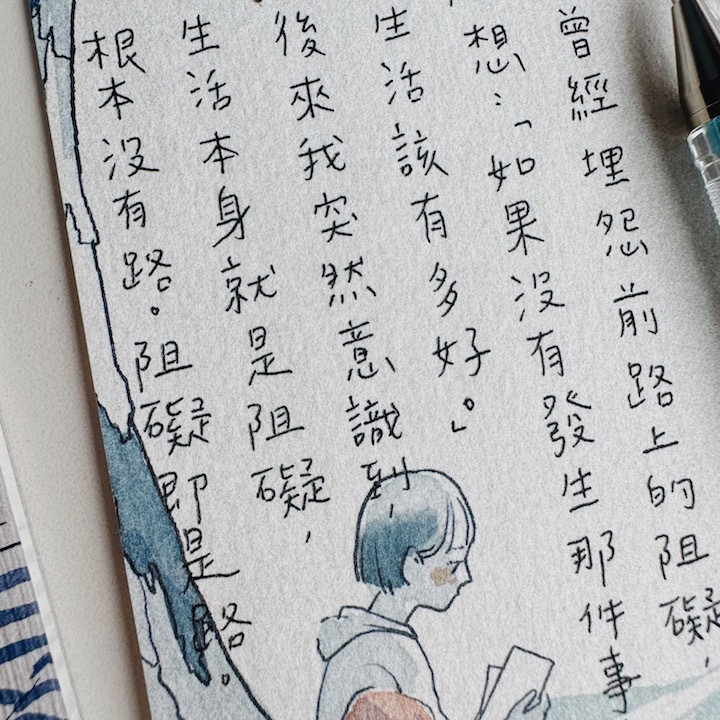 曾經埋怨前路上的阻礙，
想：「如果沒有發生那件事
生活該有多好。」
後來我突然意識到，
生活本身就是阻礙，
根本沒有路。阻礙即是路。